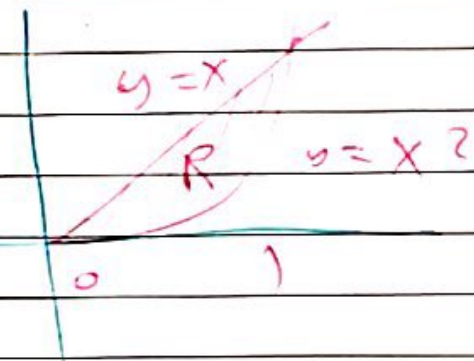 y = x
R
y = x2
0
1